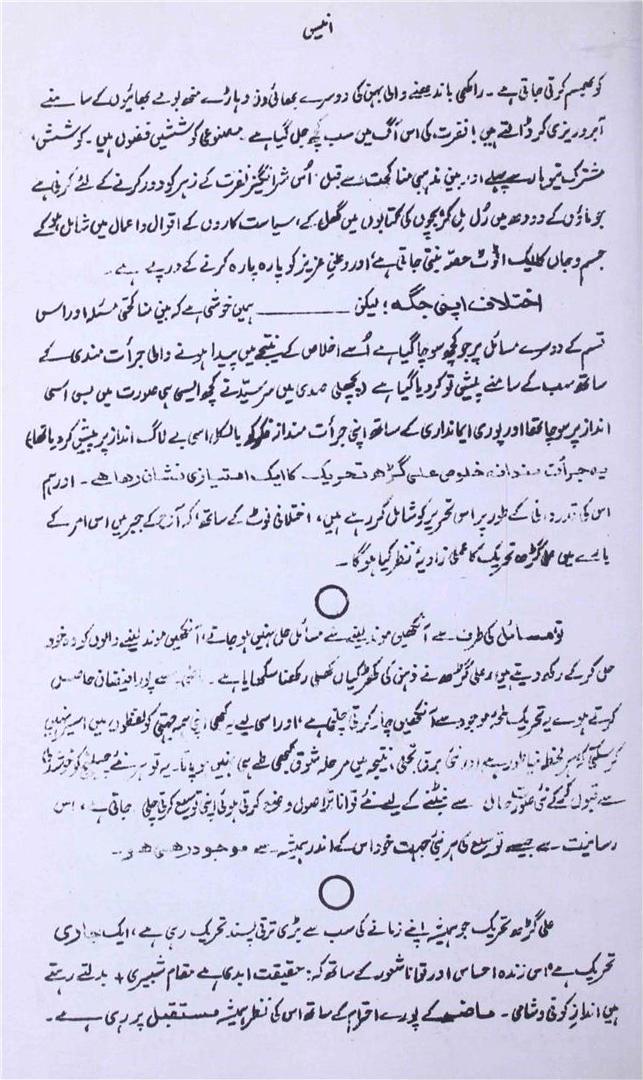 انیس
کو بھسم کرتی جاتی ہے۔ راکھی باندھنے والی بہن کی دوسرے بھائی دن دہاڑے منھ بولے بھائیوں کے سامنے
آبروریزی کر ڈالتے ہیں! نفرت کی اس آگ میں سب کچھ جل گیا ہے مصنوعی کوششیں فضول ہیں۔ کوشش،
مشترک تیوہار سے پہلے اور بین مذہبی مناکحت سے قبل، اُس شرانگیز نفرت کے زہر کو دور کرنے کے لئے کرنی ہے
جو ماؤں کے دودھ میں رَل مِل کر بچوں کی کتابوں میں گھل کے، سیاست کاروں کے اقوال و اعمال میں شامل ہو کے
جسم و جاں کا ایک اٹوٹ حصہ بنتی جاتی ہے اور وطنِ عزیز کو پارہ پارہ کرنے کے درپے ہے۔
اختلاف اپنی جگہ؛ لیکن ــــــــــ ہمیں خوشی ہے کہ بین مناکحتی مسئلہ اور اس
قسم کے دوسرے مسائل پر جو کچھ سوچا گیا ہے اُسے اخلاص کے نتیجے میں پیدا ہونے والی جرأت مندی کے
ساتھ سب کے سامنے پیش تو کر دیا گیا ہے (پچھلی صدی میں سرسیّد نے کچھ ایسی ہی صورت میں بس اسی
انداز پر سوچا تھا اور پوری ایمانداری کے ساتھ اپنی جرأت مندانہ فکر کو بالکل اسی بے لاگ انداز پر پیش کر دیا تھا)
یہ جرأت مندانہ خلوص علی گڑھ تحریک کا ایک امتیازی نشان رہا ہے۔ اور ہم
اس کی قدر دانی کے طور پر اس تحریر کو شامل کر رہے ہیں، اختلافی نوٹ کے ساتھ، کہ آج کے جبر میں اس امر کے
بارے میں علی گڑھ تحریک کا عملی زاویۂ نظر کیا ہوگا۔
تو مسائل کی طرف سے آنکھیں موند لینے سے مسائل حل نہیں ہو جاتے، آنکھیں موند لینے والوں کو وہ خود
حل کر کے رکھ دیتے ہیں، علی گڑھ نے ذہن کی کھڑکیاں کھلی رکھنا سکھایا ہے۔ سے پورا فیضان حاصل
کرتے ہوے یہ تحریک لمحۂ موجود سے آنکھیں چار کرتی چلتی ہے، اور اسی لیے یہ کبھی اپنی ہمہ جہتی کو لفظوں میں اسیر نہیں
کر سکی کہ ہر لحظہ نیا طور ہے اور نئی برقِ تجلی، نتیجہ میں مرحلۂ شوق کبھی طے ہی نہیں ہو پاتا۔ یہ تو ہر نئے چیلنج کو
سے قبول کر کے نئی صورتِ حال سے نبٹنے کے لیے نئے توانا تر اصول وضع کرتی ہوئی اپنی توسیع کرتی چلی جاتی ہے، اس
رسانیت سے جیسے توسیع کی ہر نئی جہت خود اس کے اندر ہمیشہ سے موجود رہی ہو۔
علی گڑھ تحریک جو ہمیشہ اپنے زمانے کی سب سے بڑی ترقی پسند تحریک رہی ہے، ایک جاری
تحریک ہے، اس زندہ احساس اور توانا شعور کے ساتھ کہ: حقیقت ابدی ہے مقام شبیری + بدلتے رہتے
ہیں اندازِ کوفی و شامی۔ ماضی کے پورے احترام کے ساتھ اس کی نظر ہمیشہ مستقبل پر رہی ہے۔